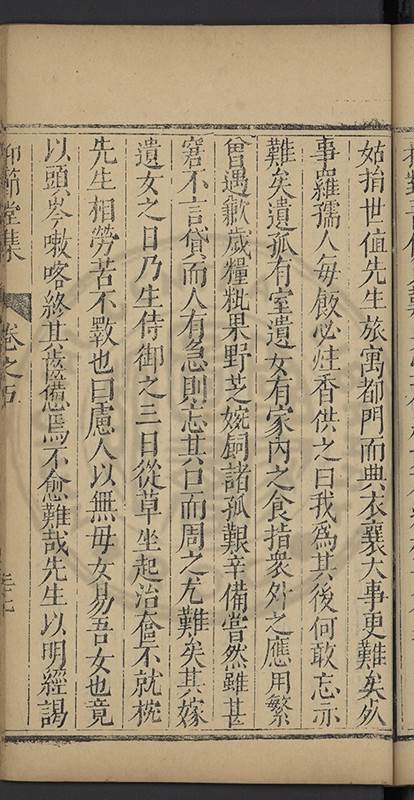 姑捐世值先生旅寓都門而典衣襄大事更難矣
事羅孺人每飯必炷香供之曰我為其後何敢忘示
難矣遺孤有室遺女有家內之食指衆外之應用繁
曾遇歉歲糧粃果野芝婉飼諸孤艱辛備嘗然雖甚
窘不言貸而人有急則忘其口而周之尤難矣其嫁
遺女之日乃生侍御之三日從草坐起治奩不就枕
先生相勞苦不斁也曰慮人以無母女易吾女也竟
以頭岑嗽喀終其齒憊焉不愈難哉先生以明經謁
仰節堂集
卷之五